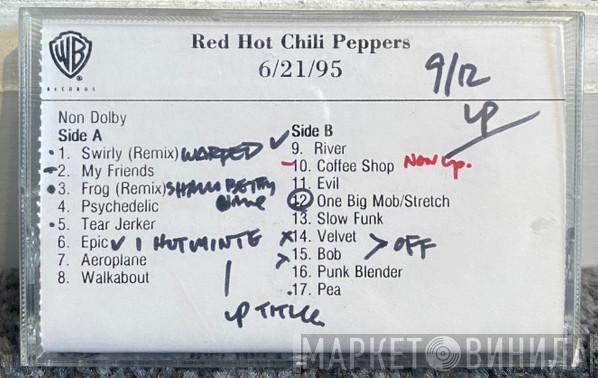 WB
RECORDS
Red Hot Chili Peppers
6/21/95
9/12
LP
Non Dolby
Side A
1. Swirly (Remix) WARPED ✓
2. My Friends
3. Frog (Remix)
4. Psychedelic
5. Tear Jerker
6. Epic ✓ 1 HOT MINTE
7. Aeroplane
8. Walkabout
LP TITLE
Side B
9. River
10. Coffee Shop NON LP.
11. Evil
12 One Big Mob/Stretch
13. Slow Funk
x14. Velvet > OFF
15. Bob
16. Punk Blender
17. Pea
МАРКЕТ ВИНИЛА